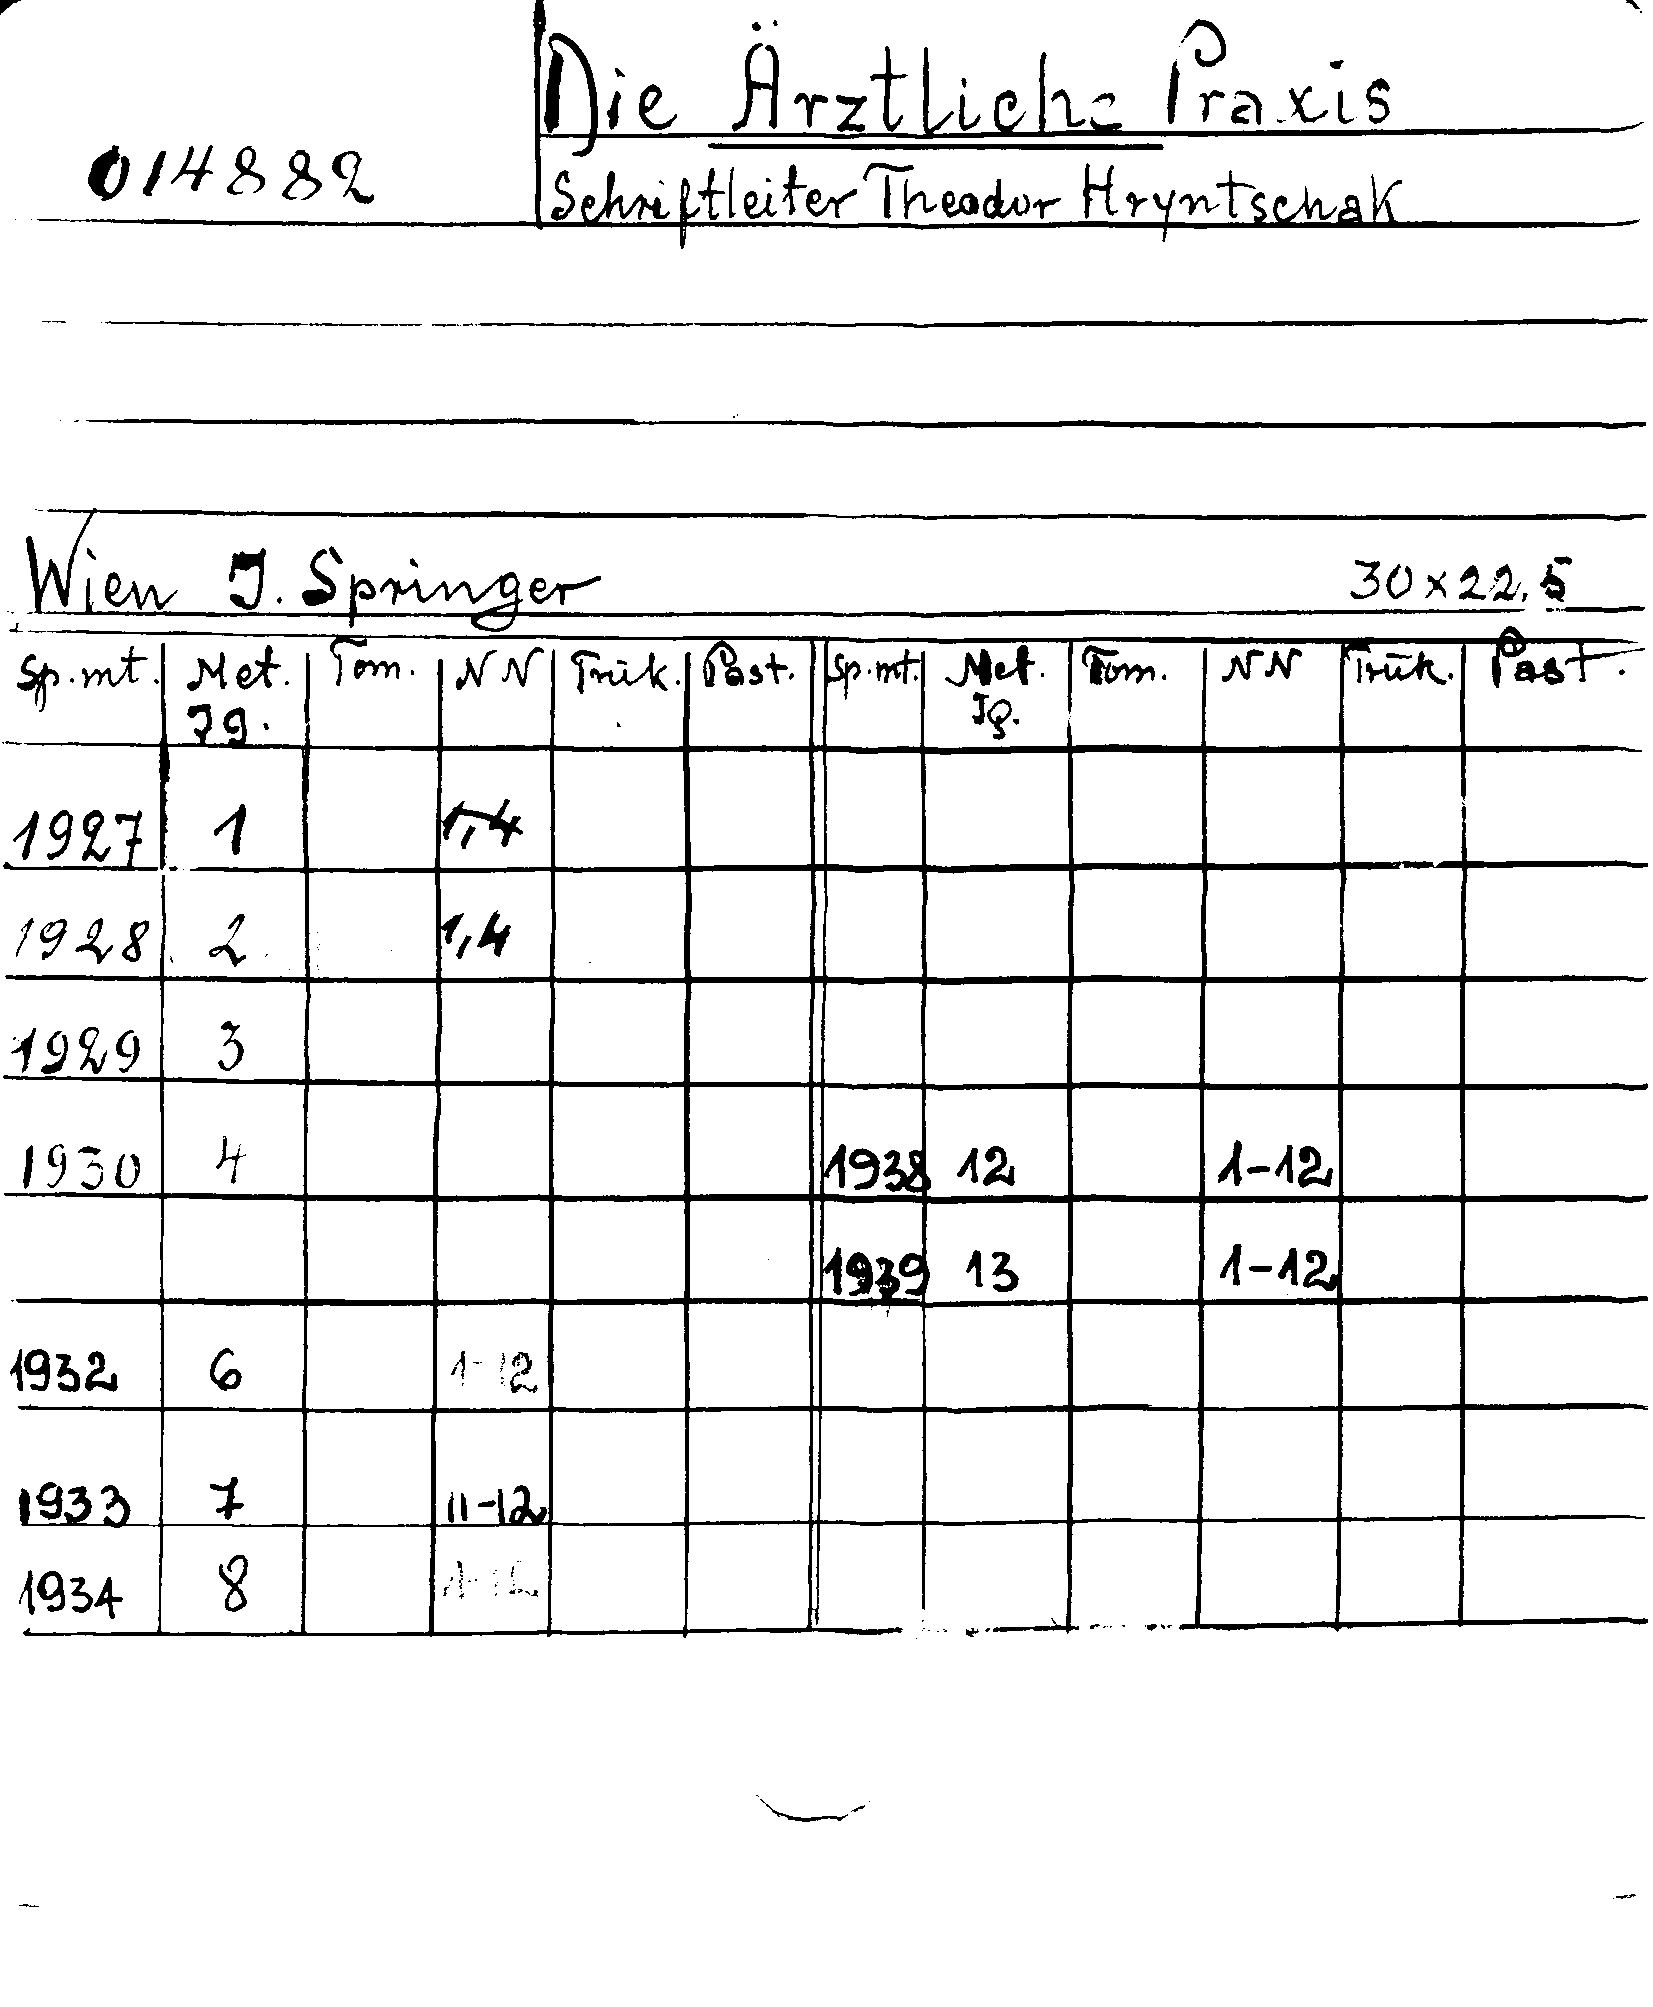 Die Ärztliche Praxis
014882
Schriftleiter Theodor Hryntschak
Wien J. Springer 30 x 22,5
Sp.mt. Met. Tom. NN Trük. Past. Sp.mt. Met. Tom. NN Trük. Past.
Jg. Jg.
1927 1 1,4
1928 2 1,4
1929 3
1930 4 1938 12 1-12
1939 13 1-12
1932 6 1-12
1933 7 11-12
1934 8 1-12